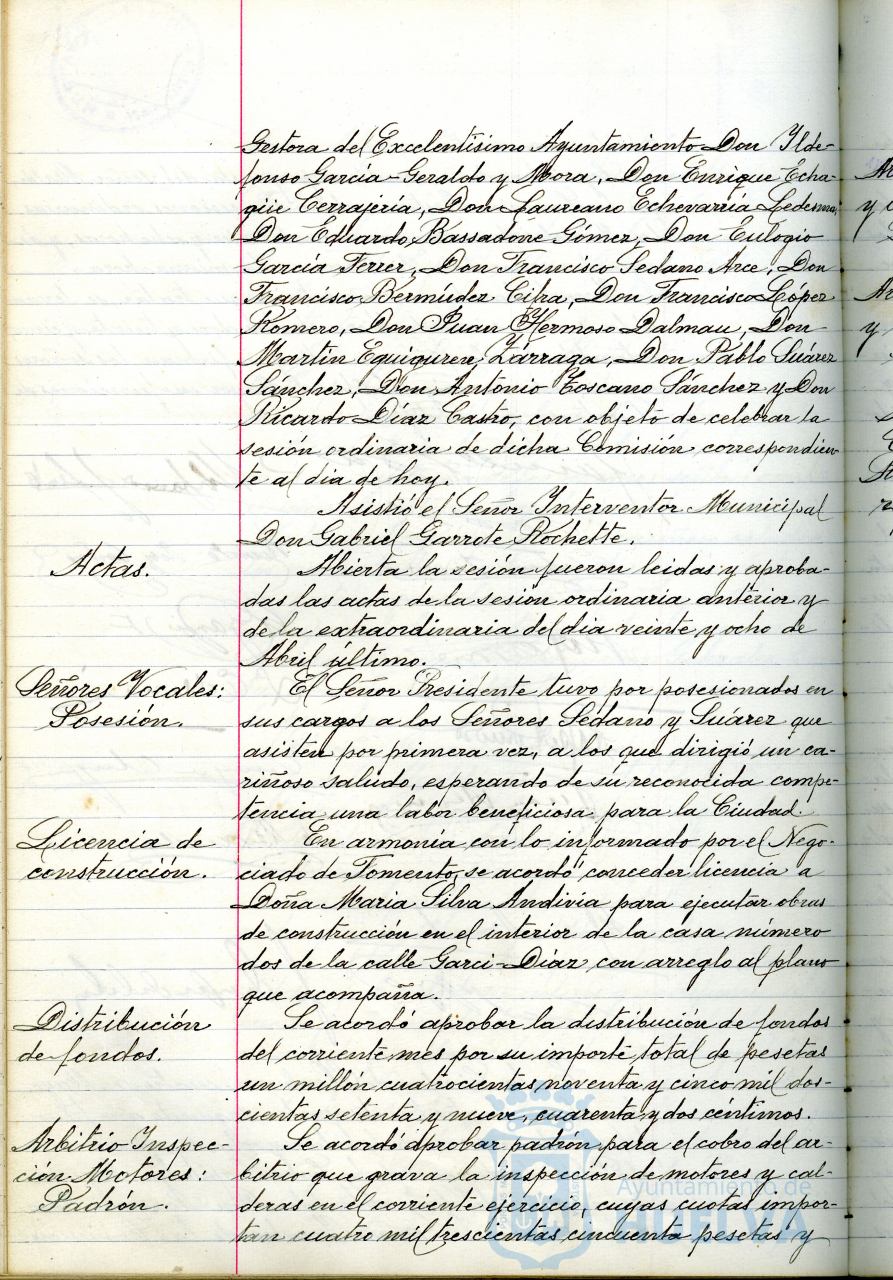 Gestora del Excelentísimo Ayuntamiento Don Ylde-
fonso García-Geraldo y Mora, Don Enrique Echa-
güe Cerrajería, Don Laureano Echevarría Ledesma,
Don Eduardo Bassadone Gómez, Don Eulogio
García Ferrer, Don Francisco Sedano Arce, Don
Francisco Bermúdez Ciha, Don Francisco López
Romero, Don Juan Hermoso Dalmau, Don
Martín Eguiguren Zárraga, Don Pablo Suárez
Sánchez, Don Antonio Toscano Sánchez y Don
Ricardo Díaz Castro, con objeto de celebrar la
sesión ordinaria de dicha Comisión correspondien-
te al dia de hoy.
Asistió el Señor Interventor Municipal
Don Gabriel Garrote Rochette.
Actas.
Abierta la sesión fueron leidas y aproba-
das las actas de la sesión ordinaria anterior y
de la extraordinaria del dia veinte y ocho de
Abril último.
Señores Vocales:
Posesión.
El Señor Presidente tuvo por posesionados en
sus cargos a los Señores Sedano y Suárez que
asisten por primera vez, a los que dirigió un ca-
riñoso saludo, esperando de su reconocida compe-
tencia una labor beneficiosa para la Ciudad.
Licencia de
construcción.
En armonía con lo informado por el Nego-
ciado de Fomento, se acordó conceder licencia a
Doña Maria Silva Andivia para ejecutar obras
de construcción en el interior de la casa número
dos de la calle Garci-Díaz con arreglo al plano
que acompaña.
Distribución
de fondos.
Se acordó aprobar la distribución de fondos
del corriente mes por su importe total de pesetas
un millón cuatrocientas noventa y cinco mil dos-
cientas setenta y nueve, cuarenta y dos céntimos.
Arbitrio Inspec-
ción Motores:
Padrón.
Se acordó aprobar padrón para el cobro del ar-
bitrio que grava la inspección de motores y cal-
deras en el corriente ejercicio, cuyas cuotas impor-
tan cuatro mil trescientas cincuenta pesetas y
Ayuntamiento de
HUELVA